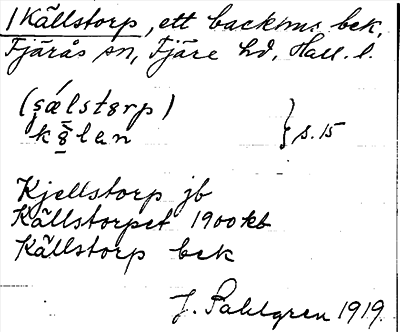 1 Källstorp, ett backhus bek.
Fjärås sn, Fjäre hd, Hall. l.
(sǽlstorp) } s. 15
kǝlan
Kjellstorp jb
Källstorpet 1900 kb
Källstorp bek
J. Sahlgren 1919.